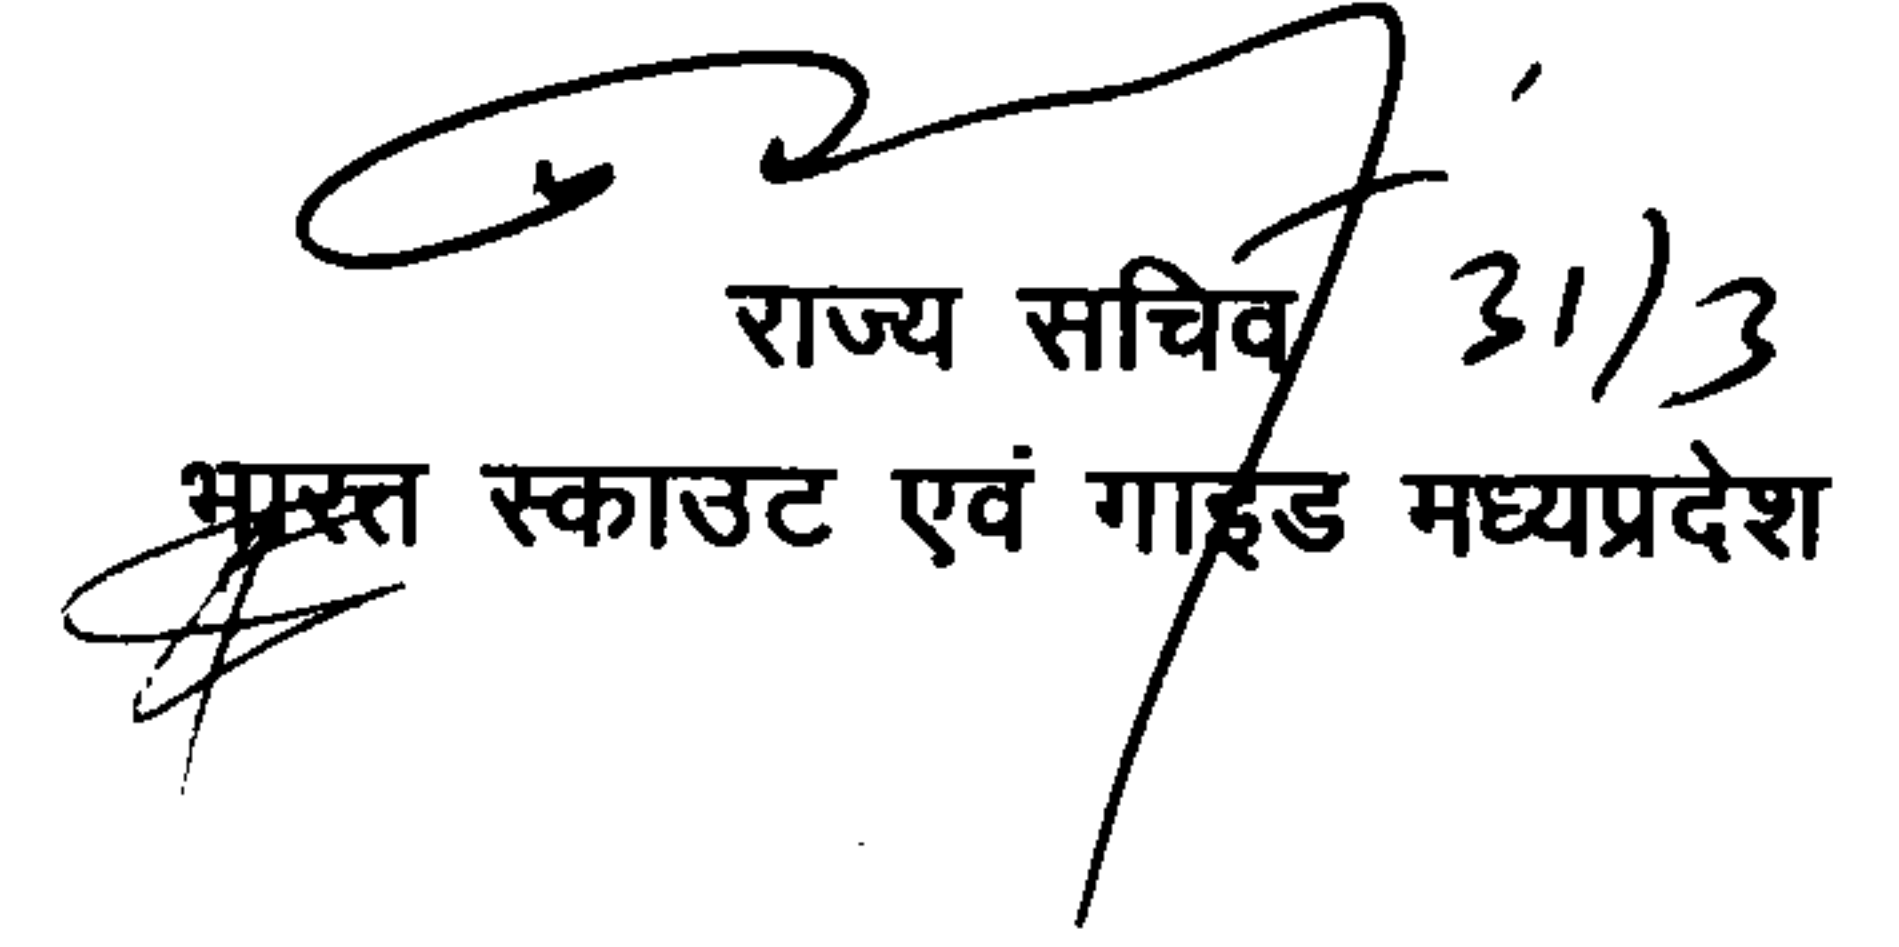 राज्य सचिव 31/3
भारत स्काउट एवं गाइड मध्यप्रदेश